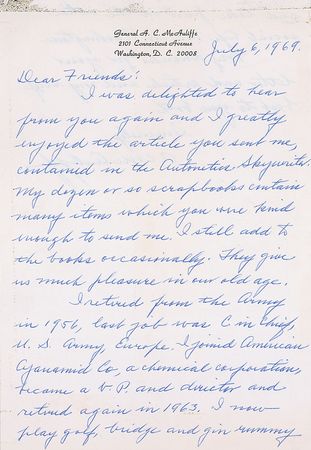 General A. C. McAuliffe
2101 Connecticut Avenue
Washington, D. C. 20008
July 6, 1969.
Dear Friends:
I was delighted to hear
from you again and I greatly
enjoyed the article you sent me,
contained in the Autonetics Skywriter.
My dozen or so scrapbooks contain
many items which you were kind
enough to send me. I still add to
the books occasionally. They give
us much pleasure in our old age.
I retired from the Army
in 1956, last job was C in Chief,
U. S. Army, Europe. I joined American
Cyanamid Co, a chemical corporation,
became a V. P. and director and
retired again in 1963. I now
play golf, bridge and gin rummy